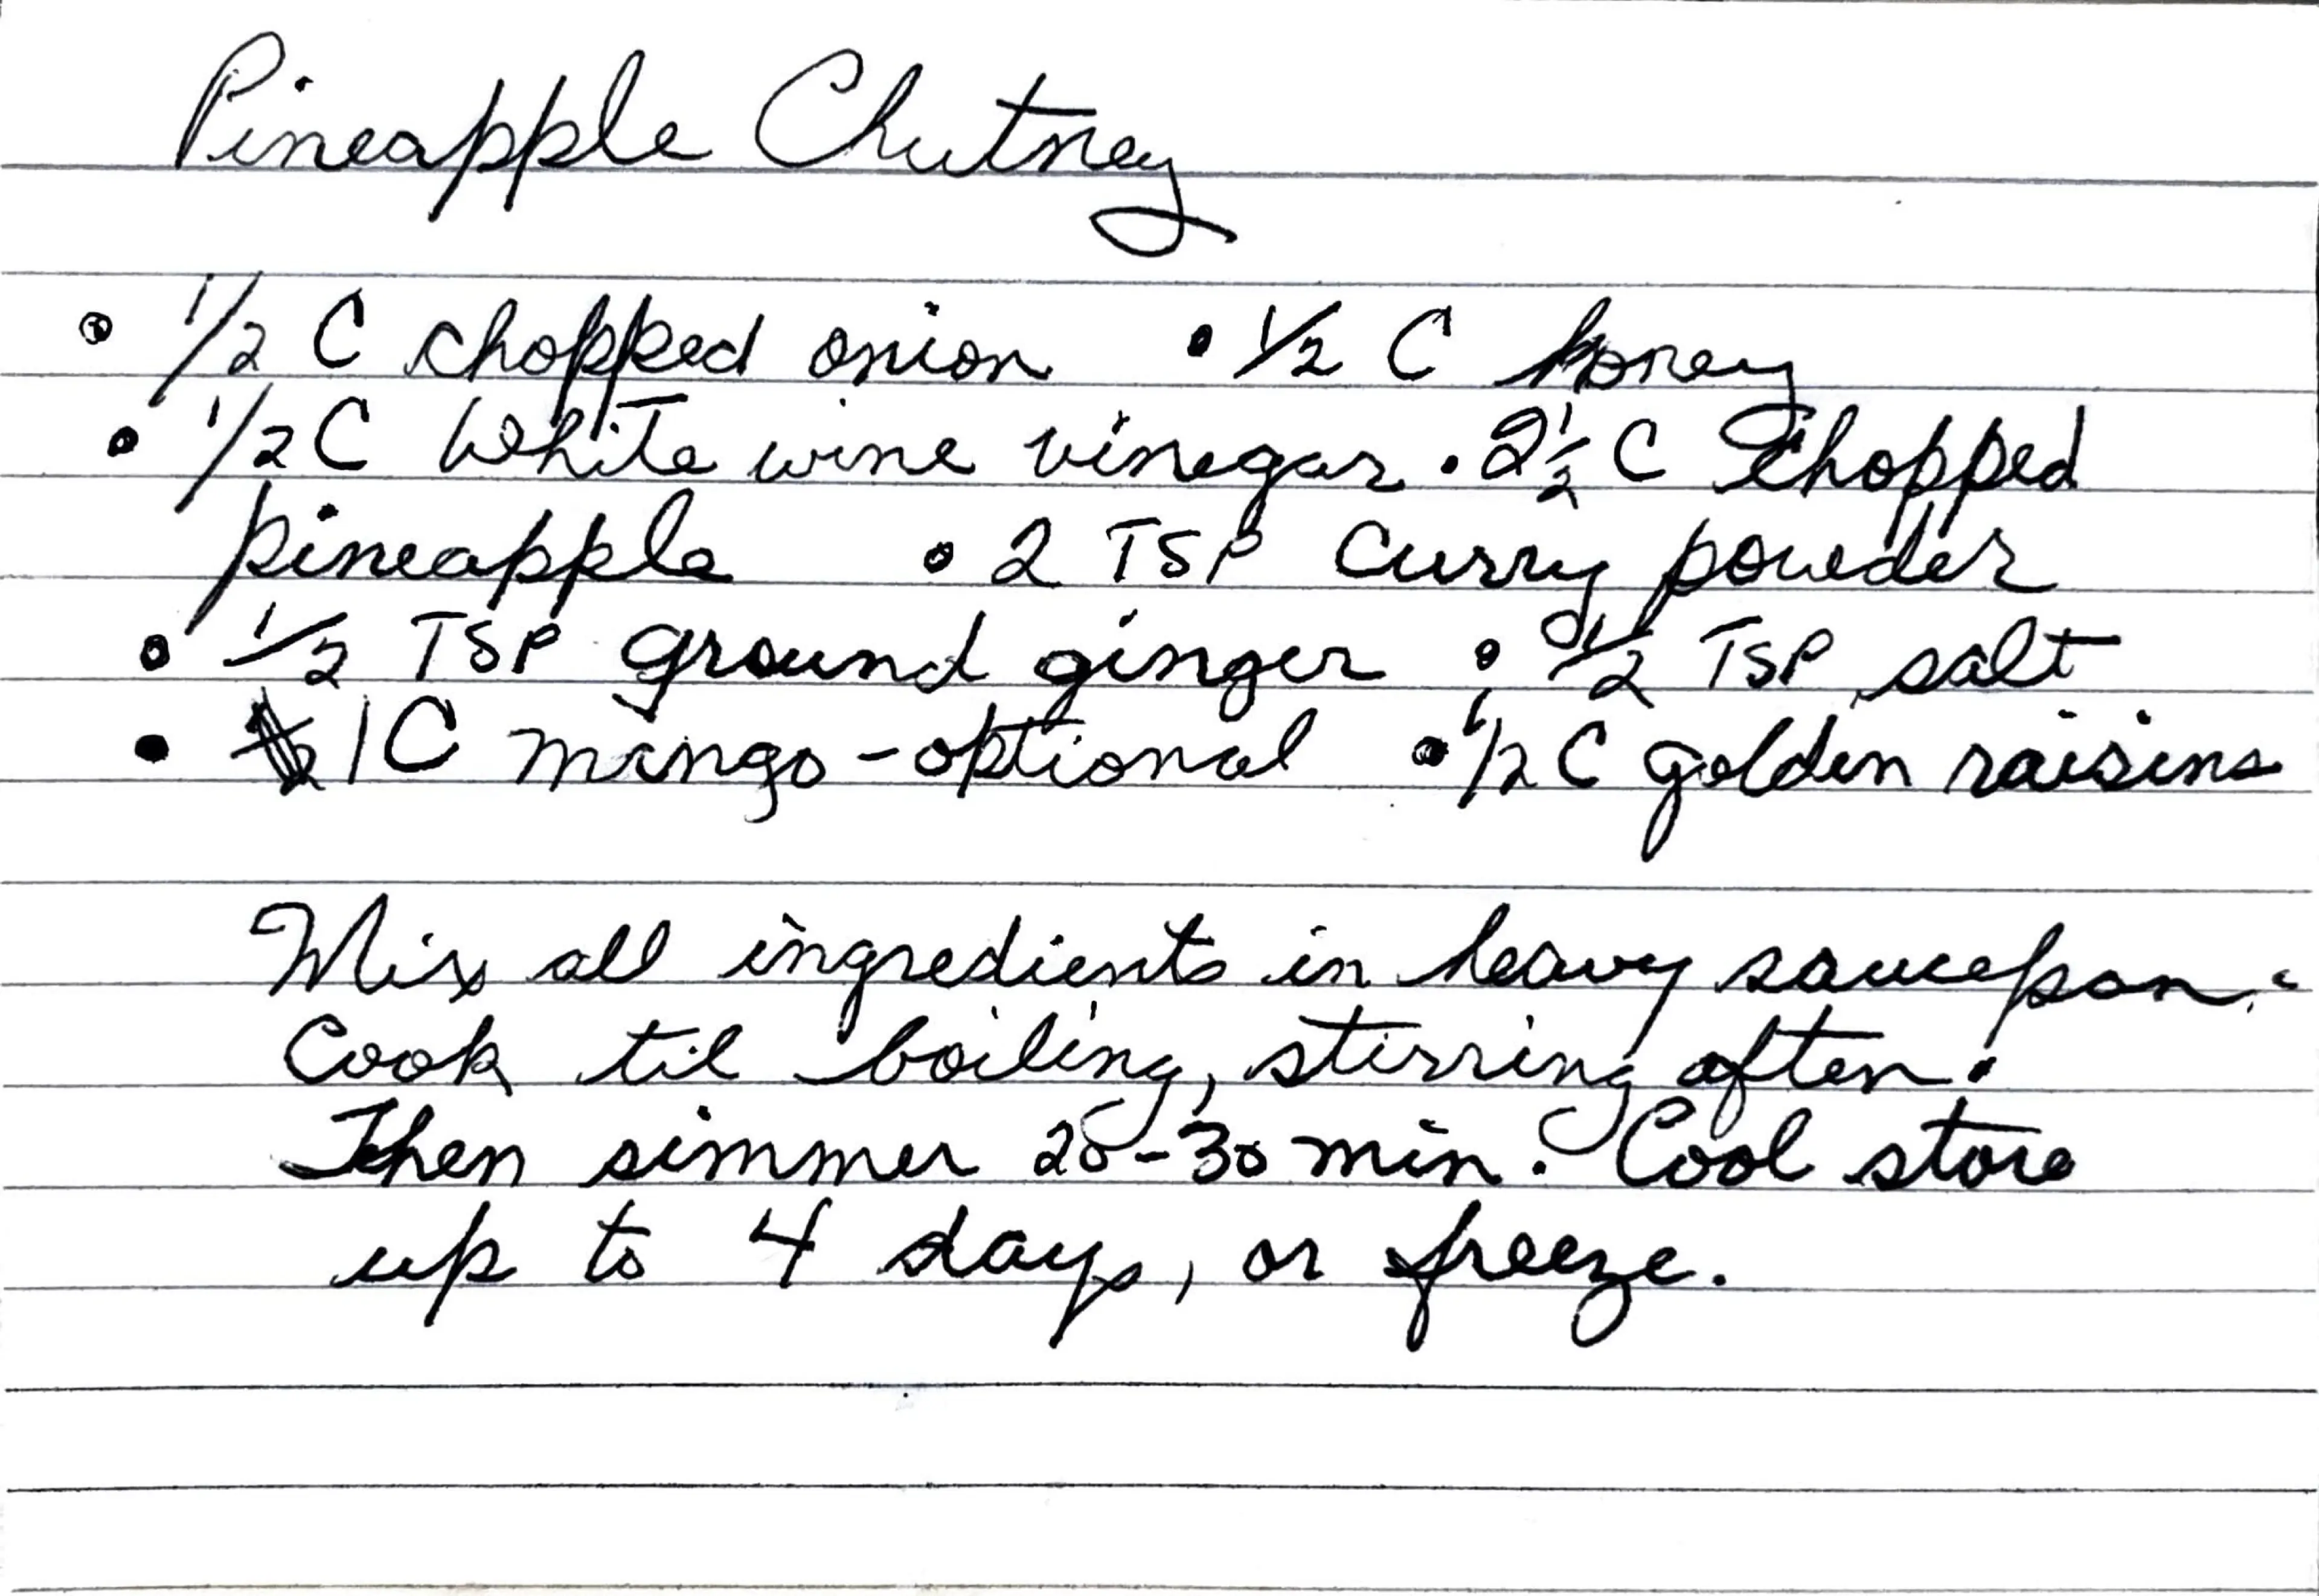 Pineapple Chutney
• 1/2 C chopped onion • 1/2 C honey
• 1/2 C White wine vinegar • 2 1/2 C Chopped
pineapple • 2 TSP Curry powder
• 1/2 TSP ground ginger • 1/2 TSP salt
• 1 C mango - optional • 1/2 C golden raisins
Mix all ingredients in heavy saucepan.
Cook til boiling, stirring often.
Then simmer 20-30 min. Cool store
up to 4 days, or freeze.